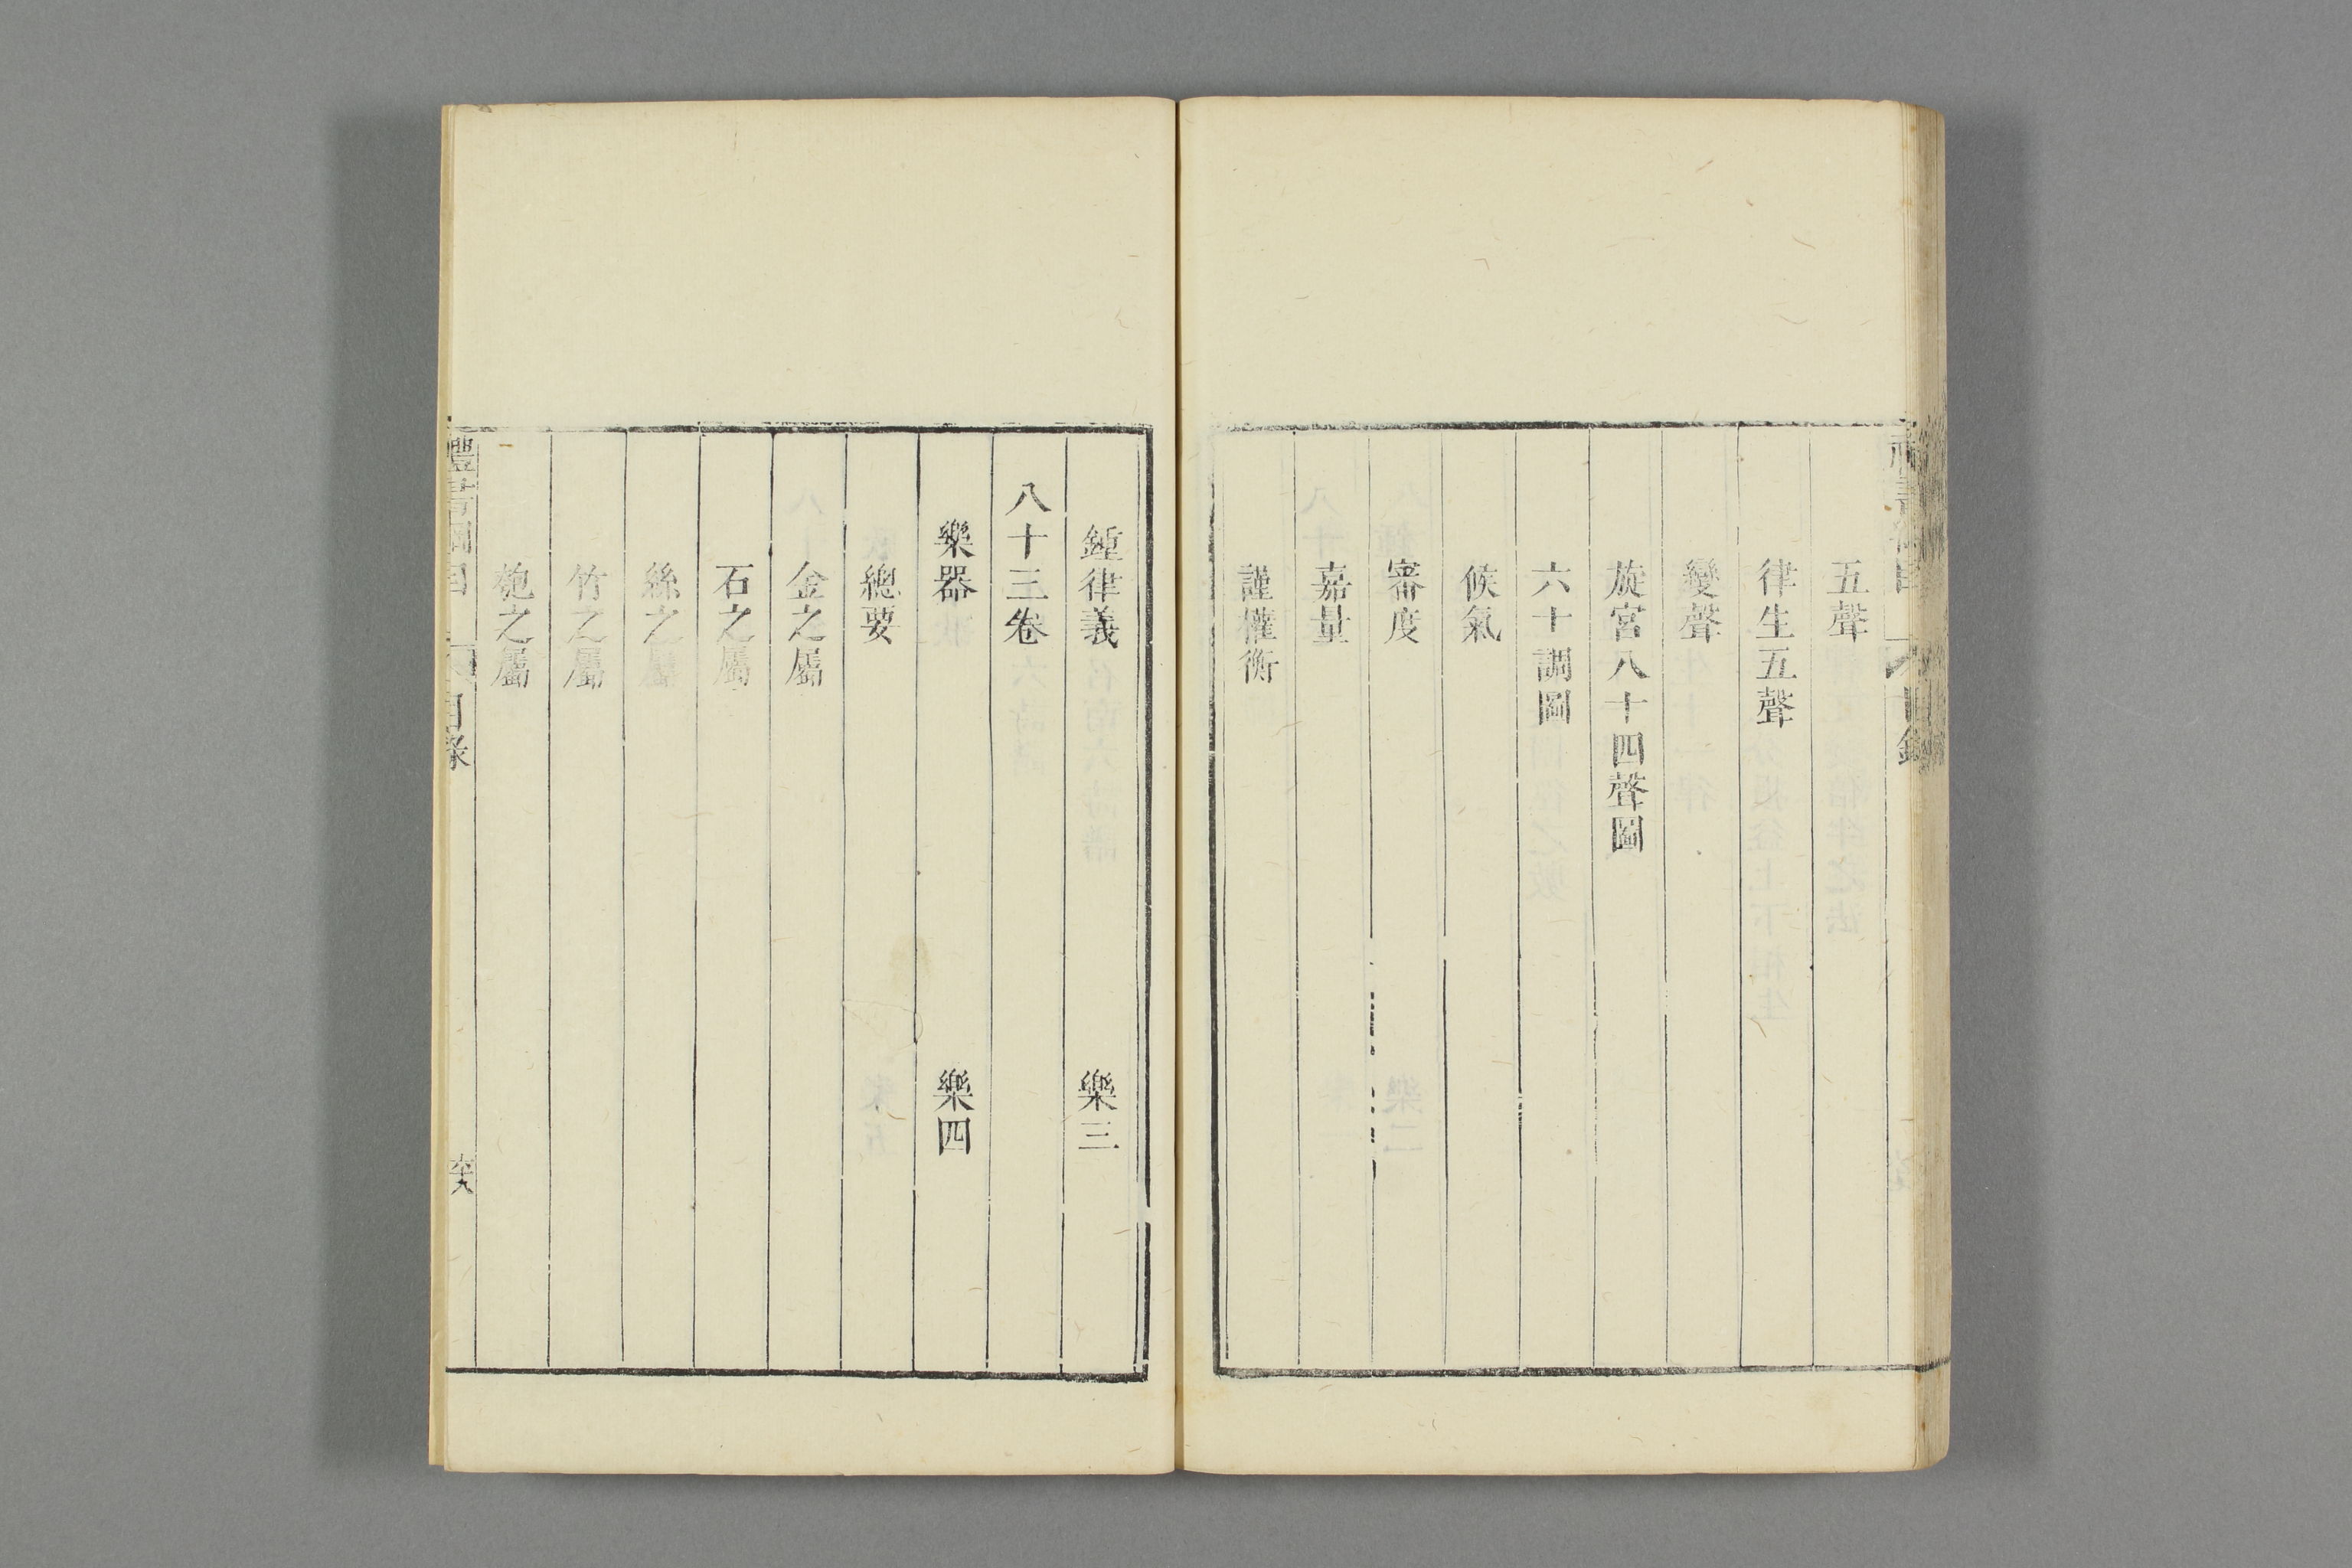 五聲
律生五聲
變聲
旋宮八十四聲圖
六十調圖
候氣
審度
嘉量
謹權衡
鍾律義 樂三
八十三卷
樂器 樂四
總要
金之屬
石之屬
絲之屬
竹之屬
匏之屬
禮書綱目 目錄 六十八